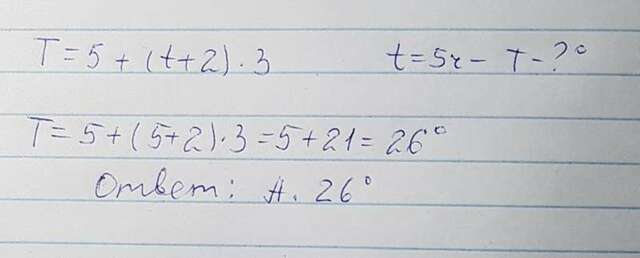 T = 5 + (t+2) · 3 t = 5ч - T - ?°
T = 5 + (5+2) · 3 = 5 + 21 = 26°
Ответ: А. 26°